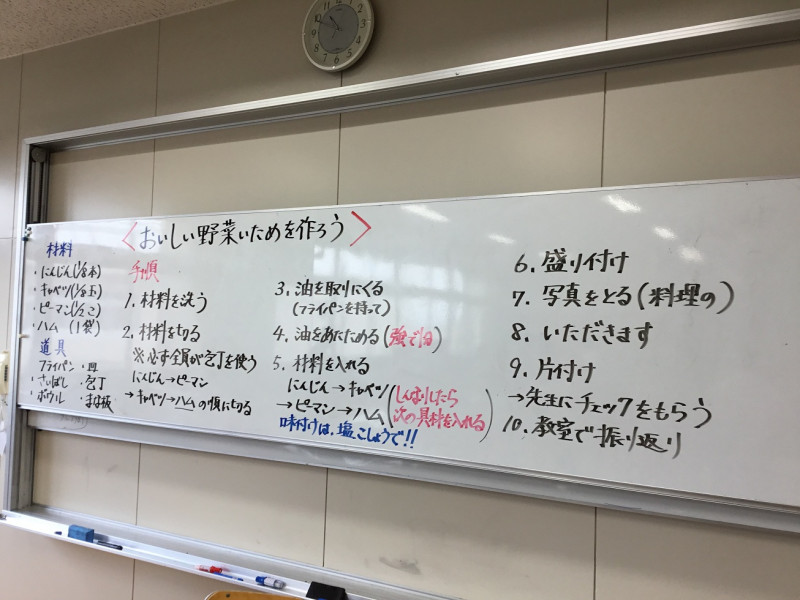 〈おいしい野菜いためを作ろう〉
材料
・にんじん(1/8本)
・キャベツ(1/8玉)
・ピーマン(1/2こ)
・ハム (1袋)
道具
・フライパン ・皿
・さいばし ・包丁
・ボウル ・まな板
手順
1. 材料を洗う
2. 材料を切る
※必ず全員が包丁を使う
にんじん→ピーマン
→キャベツ→ハムの順に切る
3. 油を取りにくる
(フライパンを持って)
4. 油をあたためる(強で1分)
5. 材料を入れる
にんじん→キャベツ
→ピーマン→ハム(しんなりしたら
次の具材を入れる)
味付けは、塩、こしょうで!!
6. 盛り付け
7. 写真をとる(料理の)
8. いただきます
9. 片付け
→先生にチェックをもらう
10. 教室で振り返り